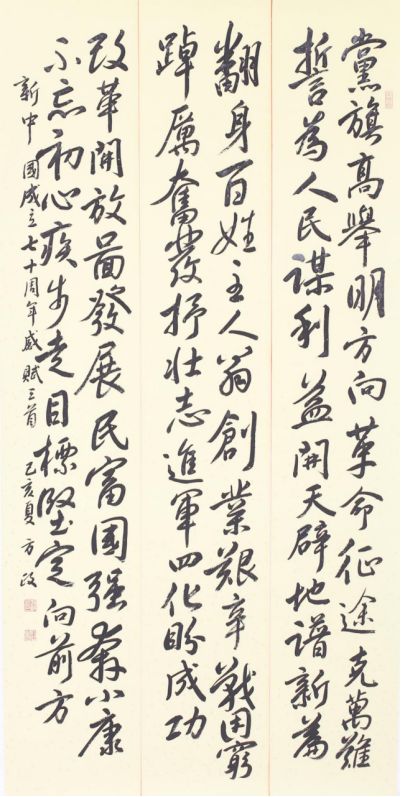 黨旗高舉明方向革命征途克萬難
誓為人民謀利益開天辟地譜新篇
翻身百姓主人翁創業艱辛戰困窮
踔厲奮發抒壯志進軍四化盼成功
改革開放啚發展民富國强奔小康
不忘初心疾步走目標堅定向前方
新中國成立七十周年感賦三首 己亥夏 方政